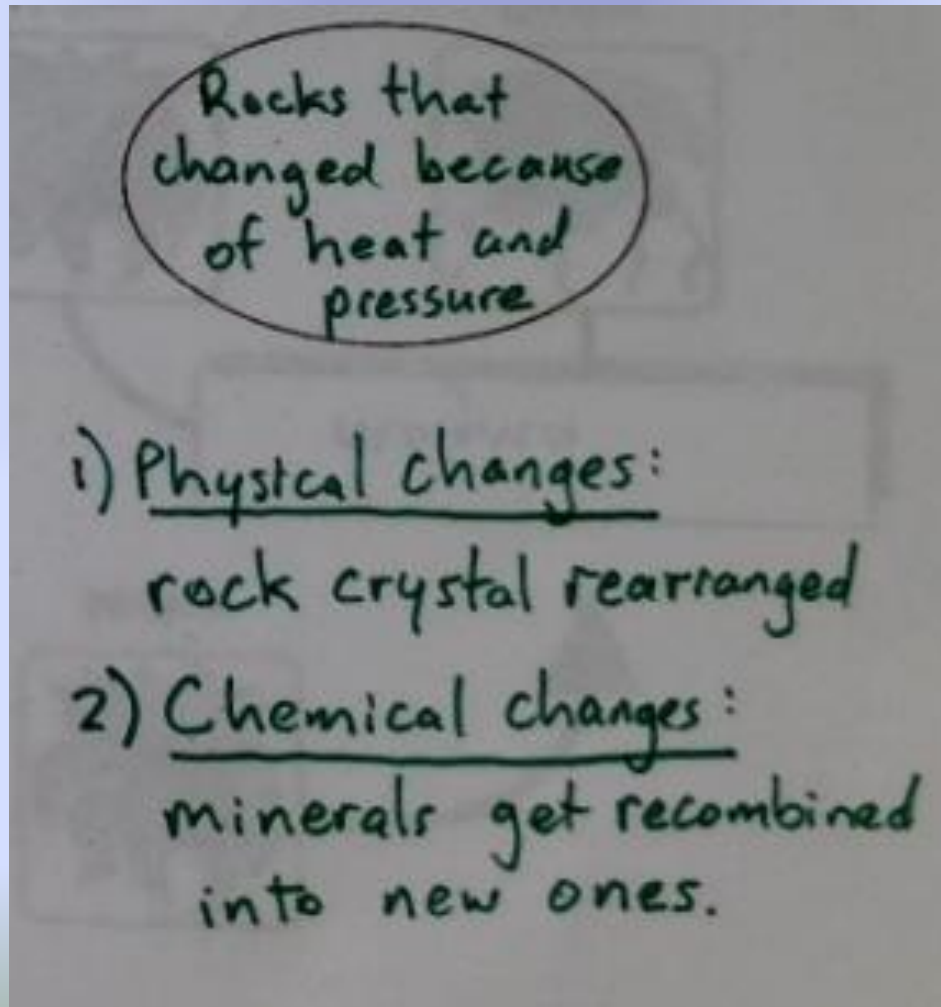 Rocks that
changed because
of heat and
pressure
1) Physical changes:
rock crystal rearranged
2) Chemical changes:
minerals get recombined
into new ones.